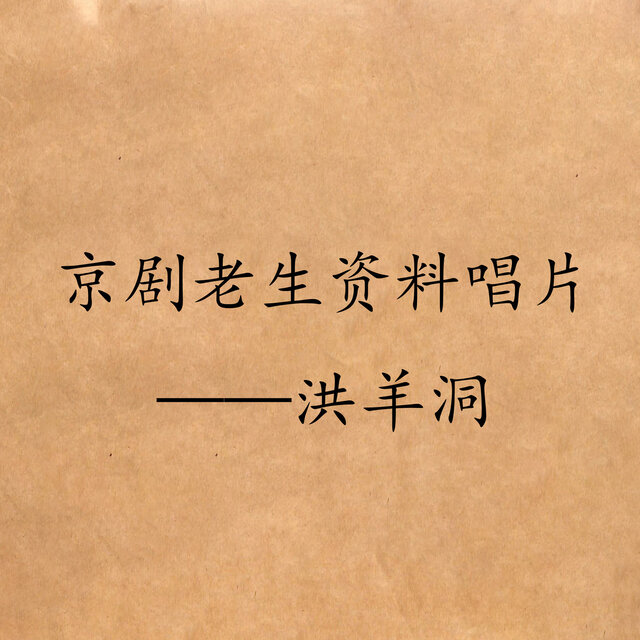 京剧老生资料唱片
——洪羊洞